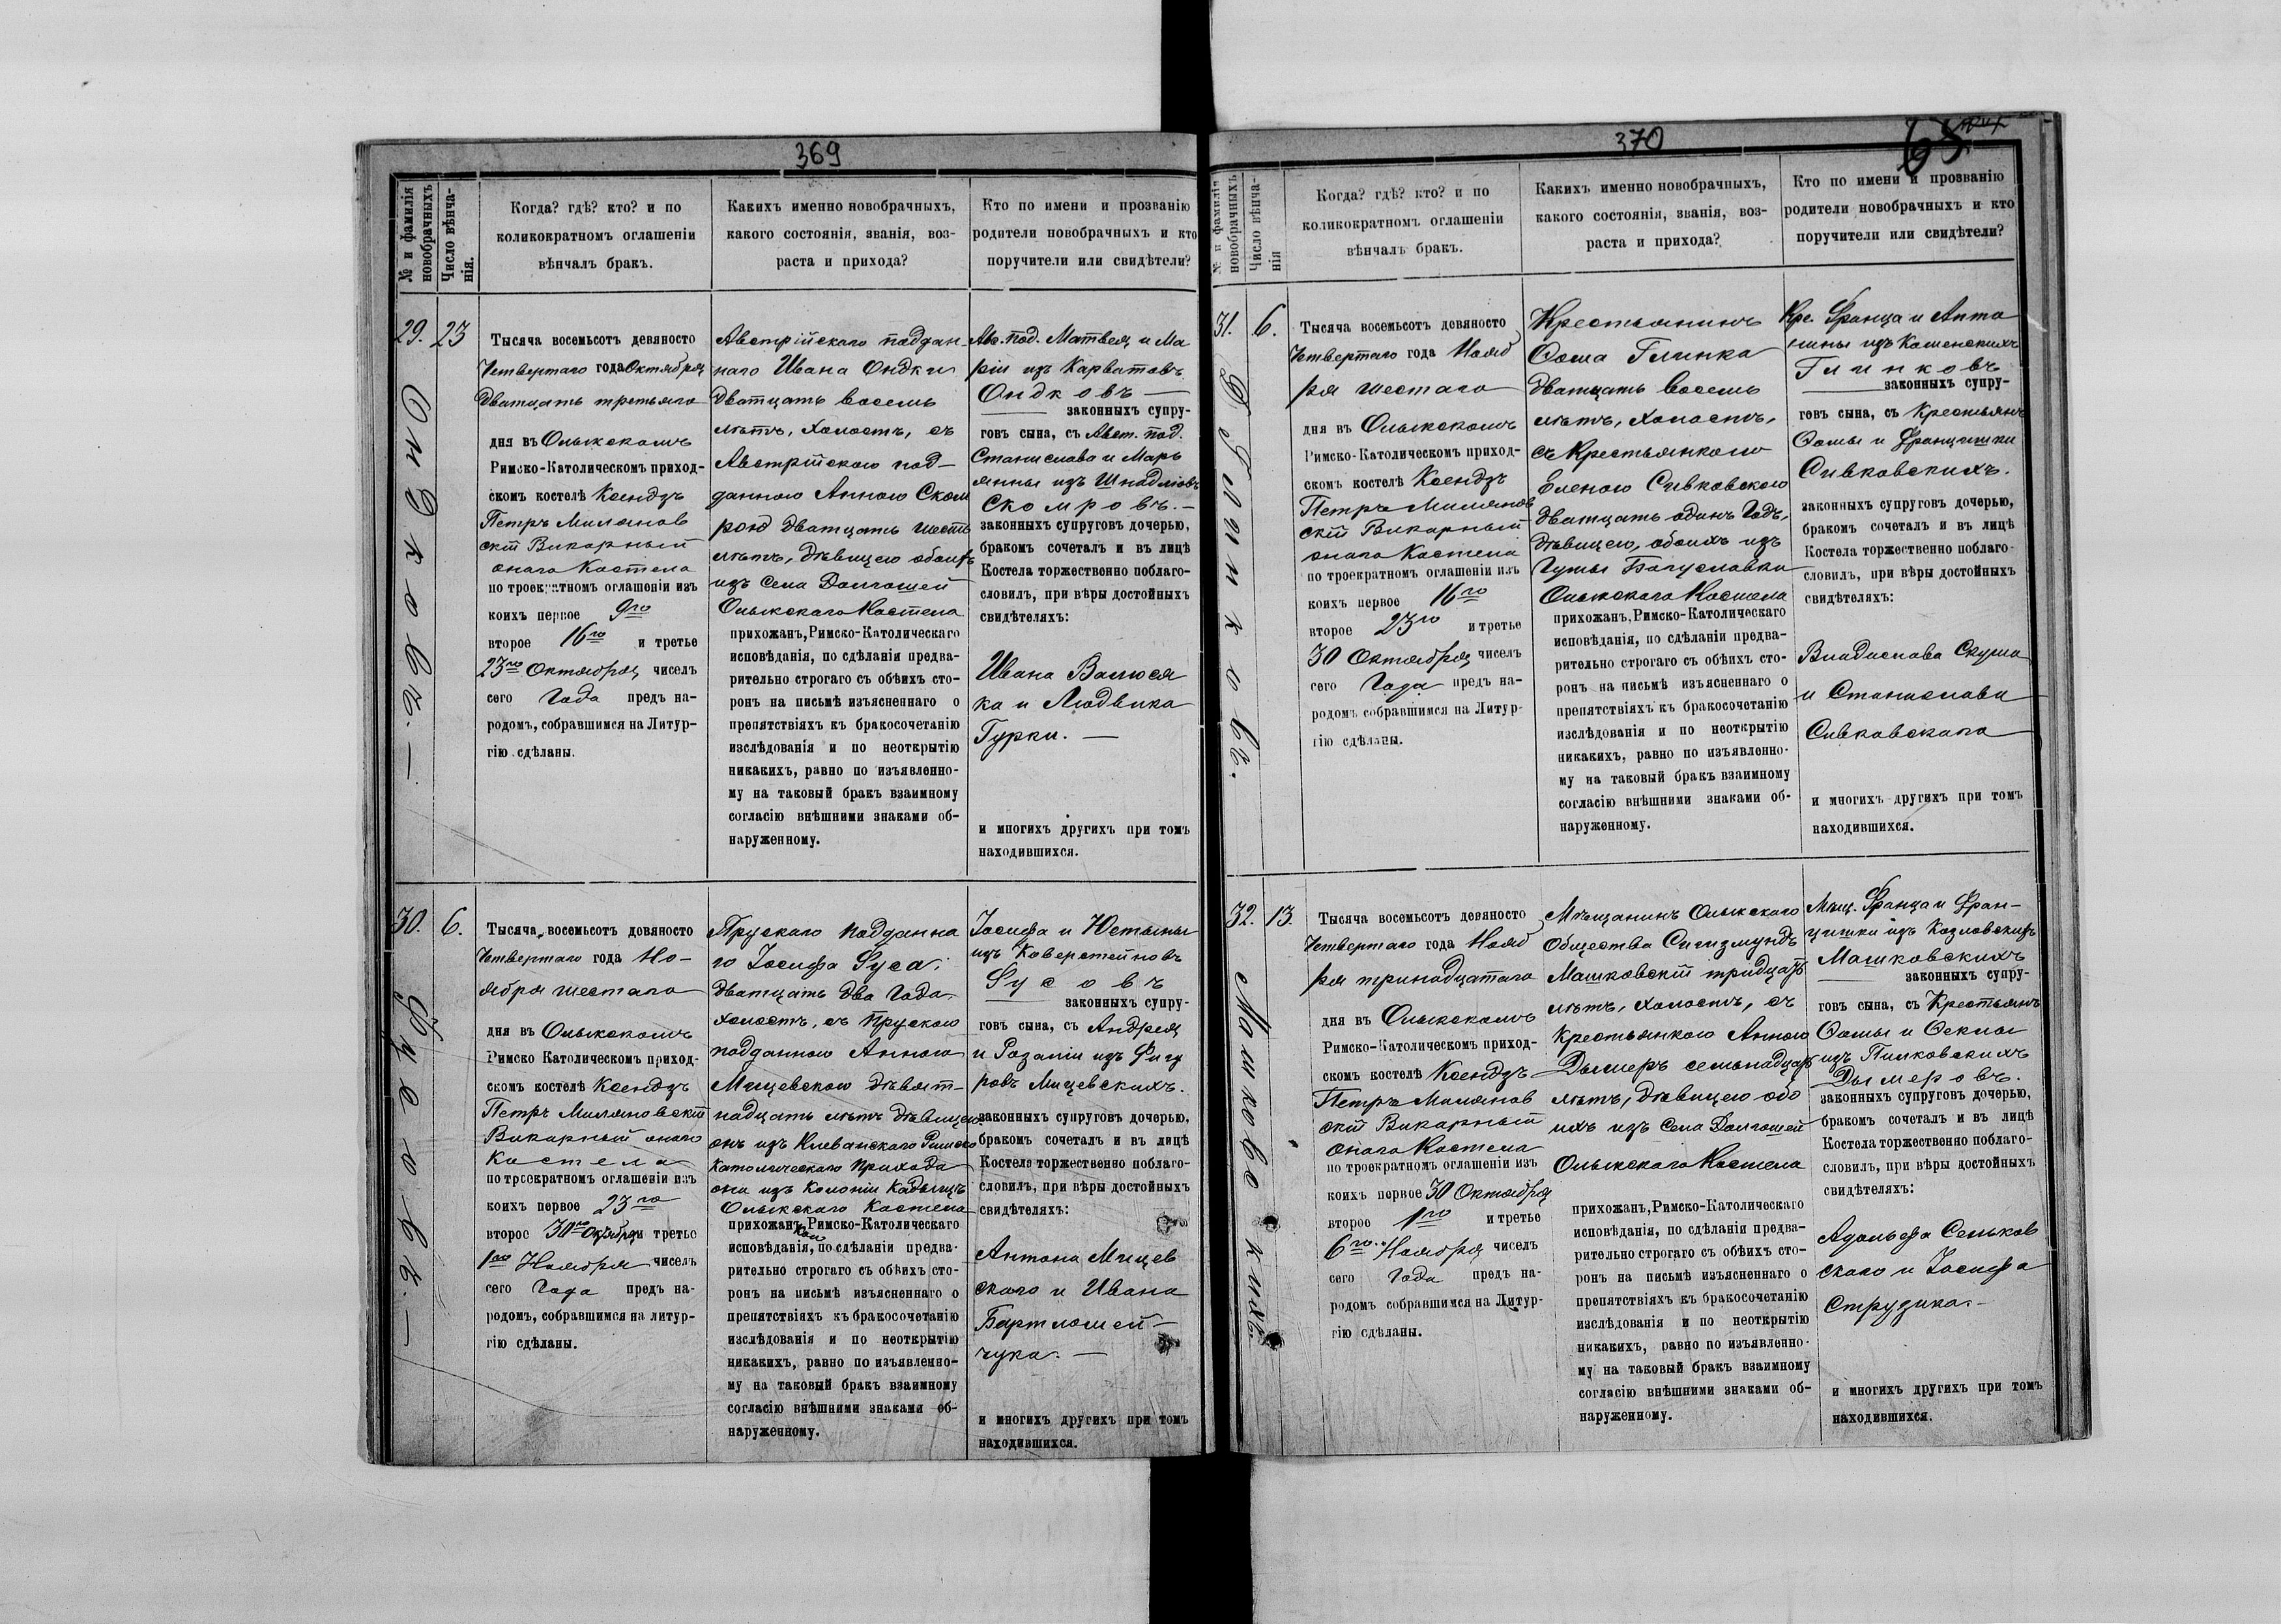 369
№ и фамилія новобрачныхъ
Число вѣнча-
нія.
Когда? гдѣ? кто? и по
коликократномъ оглашеніи
вѣнчалъ бракъ.
Какихъ именно новобрачныхъ,
какого состоянія, званія, воз-
раста и прихода?
Кто по имени и прозванію
родители новобрачныхъ и кто
поручители или свидѣтели?
29.
23
Тысяча восемьсотъ девяносто
Четвертаго года Октября
Двадцать третьяго
дня въ Олыкскомъ
Римско-Католическомъ приход-
скомъ костелѣ Ксендзъ
Петръ Миляновс
скій Викарный
онаго Костела
по троекратномъ оглашеніи изъ
коихъ первое 9го
второе 16го и третье
23го Октября чиселъ
сего Года предъ на-
родомъ, собравшимся на Литур-
гію сдѣланы.
Австрійскаго поддан-
наго Ивана Ондки
Двадцать восемь
лѣтъ, холостъ, съ
Австрійскою под-
данною Анною Ском
рою двадцать шесть
лѣтъ, дѣвицею обоихъ
изъ Села Долгошей
Олыкскаго Костела
прихожанъ, Римско-Католическаго
исповѣданія, по сдѣланіи предва-
рительно строгаго съ обѣихъ сто-
ронъ на письмѣ изъясненнаго о
препятствіяхъ къ бракосочетанію
изслѣдованія и по неоткрытію
никакихъ, равно по изъявленно-
му на таковый бракъ взаимному
согласію внѣшними знаками об-
наруженному.
Авс. под. Матвея и Ма
ріи изъ Карватовъ
Ондковъ —
законныхъ супру-
говъ сына, съ Авст. под.
Станислава и Марь
янны изъ
Скомровъ. —
законныхъ супруговъ дочерью,
бракомъ сочеталъ и въ лицѣ
Костела торжественно поблаго-
словилъ, при вѣры достойныхъ
свидѣтеляхъ:
Ивана Валюся
ка и Людвика
Гурки. —
и многихъ другихъ при томъ
находившихся.
Ондковъ. —
30.
6.
Тысяча восемьсотъ девяносто
Четвертаго года Но-
ября шестаго
дня въ Олыкскомъ
Римско Католическомъ приход-
скомъ костелѣ Ксендзъ
Петръ Миляновскій
Викарный онаго
Костела
по троекратномъ оглашеніи изъ
коихъ первое 23го
второе 30го Октября и третье
1го Ноября чиселъ
сего Года предъ на-
родомъ, собравшимся на литур-
гію сдѣланы.
Прускаго подданна
го Іосифа Гуса
двадцать два Года
холостъ, съ Прускою
подданною Анною
Мицевскою девят-
надцать лѣтъ дѣвицею
онъ изъ Клеванскаго Римско
Католическаго Прихода
она изъ Колоніи Кадыщъ
Олыкскаго Костела
прихожанъ, Римско-Католическаго
исповѣданія, по сдѣланіи предва-
рительно строгаго съ обѣихъ сто-
ронъ на письмѣ изъясненнаго о
препятствіяхъ къ бракосочетанію
изслѣдованія и по неоткрытію
никакихъ, равно по изъявленно-
му на таковый бракъ взаимному
согласію внѣшними знаками об-
наруженному.
Іосифа и Юстыны
изъ Каверстейновъ
Гусовъ
законныхъ супру-
говъ сына, съ Андрея
и Розаліи изъ Фигу
ровъ Мицевскихъ.
законныхъ супруговъ дочерью,
бракомъ сочеталъ и въ лицѣ
Костела торжественно поблаго-
словилъ, при вѣры достойныхъ
свидѣтеляхъ:
Антона Мицев
скаго и Ивана
Бартломей-
чука. —
и многихъ другихъ при томъ
находившихся.
Гусовъ. —
370
№ и фамилія новобрачныхъ
Число вѣнча-
нія
Когда? гдѣ? кто? и по
коликократномъ оглашеніи
вѣнчалъ бракъ.
Какихъ именно новобрачныхъ,
какого состоянія, званія, воз-
раста и прихода?
Кто по имени и прозванію
родители новобрачныхъ и кто
поручители или свидѣтели?
31.
6.
Тысяча восемьсотъ девяносто
Четвертаго года Нояб
ря шестаго
дня въ Олыкскомъ
Римско-Католическомъ приход-
скомъ костелѣ Ксендзъ
Петръ Миляновс
скій Викарный
онаго Костела
по троекратномъ оглашеніи изъ
коихъ первое 16го
второе 23го и третье
30 Октября чиселъ
сего Года предъ на-
родомъ собравшимся на Литур-
гію сдѣланы.
Крестьянинъ
Ѳома Глинка
двадцать восемь
лѣтъ, холостъ,
съ Крестьянкою
Еленою Сивковскою
двадцать одинъ Годъ,
дѣвицею, обоихъ изъ
Гуты Богуславки
Олыкскаго Костела
прихожанъ, Римско-Католическаго
исповѣданія, по сдѣланіи предва-
рительно строгаго съ обѣихъ сто-
ронъ на письмѣ изъясненнаго о
препятствіяхъ къ бракосочетанію
изслѣдованія и по неоткрытію
никакихъ, равно по изъявленно-
му на таковый бракъ взаимному
согласію внѣшними знаками об-
наруженному.
Кре. Франца и Анто
нины изъ Каменскихъ
Глинковъ
законныхъ супру-
говъ сына, съ Крестьянъ
Ѳомы и Францишки
Сивковскихъ.
законныхъ супруговъ дочерью,
бракомъ сочеталъ и въ лицѣ
Костела торжественно поблаго-
словилъ, при вѣры достойныхъ
свидѣтеляхъ:
Владислава Скума
и Станислава
Сивковскаго
и многихъ другихъ при томъ
находившихся.
Глинковъ.
32.
13.
Тысяча восемьсотъ девяносто
Четвертаго года Нояб
ря тринадцатаго
дня въ Олыкскомъ
Римско-Католическомъ приход-
скомъ костелѣ Ксендзъ
Петръ Миляновс
скій Викарный
онаго Костела
по троекратномъ оглашеніи изъ
коихъ первое 30 Октября
второе 1го и третье
6го Ноября чиселъ
сего Года предъ на-
родомъ собравшимся на Литур-
гію сдѣланы.
Мѣщанинъ Олыкскаго
Общества Сигизмундъ
Машковскій тридцать
лѣтъ, холостъ, съ
Крестьянкою Анною
Дымеръ семнадцать
лѣтъ, дѣвицею обо
ихъ изъ Села Долгошей
Олыкскаго Костела
прихожанъ, Римско-Католическаго
исповѣданія, по сдѣланіи предва-
рительно строгаго съ обѣихъ сто-
ронъ на письмѣ изъясненнаго о
препятствіяхъ къ бракосочетанію
изслѣдованія и по неоткрытію
никакихъ, равно по изъявленно-
му на таковый бракъ взаимному
согласію внѣшними знаками об-
наруженному.
Мѣщ. Франца и Фран-
цишки изъ Козловскихъ
Машковскихъ
законныхъ супру-
говъ сына, съ Крестьянъ
Ѳомы и Ѳеклы
изъ Пилковскихъ
Дымеровъ.
законныхъ супруговъ дочерью,
бракомъ сочеталъ и въ лицѣ
Костела торжественно поблаго-
словилъ, при вѣры достойныхъ
свидѣтеляхъ:
Адольфа Сеньков
скаго и Іосифа
Струзика. —
и многихъ другихъ при томъ
находившихся.
Машковскихъ